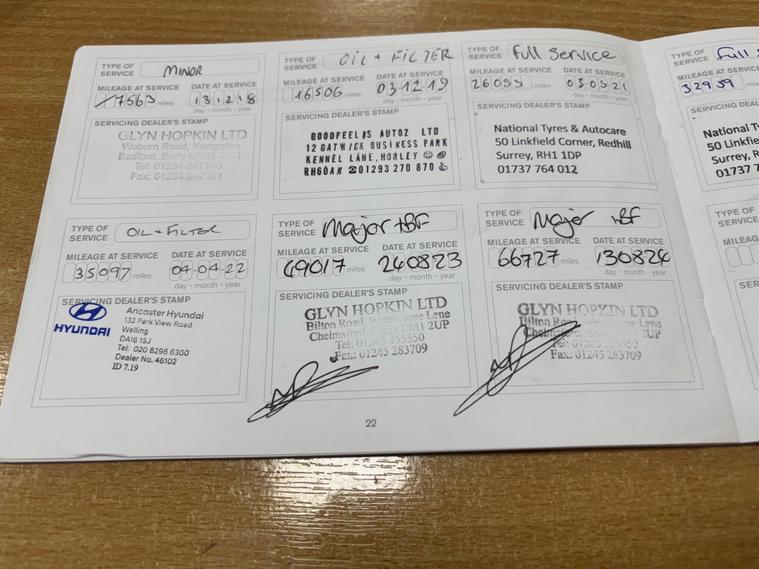 TYPE OF SERVICE MINOR
MILEAGE AT SERVICE DATE AT SERVICE
17663 miles 131218
day - month - year
SERVICING DEALER'S STAMP
GLYN HOPKIN LTD
Woburn Road, Kempston
Bedford, Beds
Tel: 01234
Fax: 01234
TYPE OF SERVICE OIL + FILTER
MILEAGE AT SERVICE DATE AT SERVICE
16506 miles 031219
day - month - year
SERVICING DEALER'S STAMP
AUTOZ LTD
12 GATWICK BUSINESS PARK
KENNEL LANE, HORLEY
RH60AX ☎01293 270 870
TYPE OF SERVICE Full Service
MILEAGE AT SERVICE DATE AT SERVICE
miles 030521
day - month - year
SERVICING DEALER'S STAMP
National Tyres & Autocare
50 Linkfield Corner, Redhill
Surrey, RH1 1DP
01737 764 012
TYPE OF SERVICE Full
MILEAGE AT
32939
SERVICING
National
50 Linkfie
Surrey, R
01737
TYPE OF SERVICE OIL + FILTER
MILEAGE AT SERVICE DATE AT SERVICE
35097 miles 04.04.22
day - month - year
SERVICING DEALER'S STAMP
HYUNDAI
Ancaster Hyundai
132 Park View Road
Welling
DA16 1SJ
Tel: 020 8298 6300
Dealer No. 46102
ID 7.19
TYPE OF SERVICE Major +BF
MILEAGE AT SERVICE DATE AT SERVICE
49017 miles 240823
day - month - year
SERVICING DEALER'S STAMP
GLYN HOPKIN LTD
Bilton Road, Waterhouse Lane
Chelmsford, Essex CM1 2UP
Tel: 01245 355550
Fax: 01245 283709
TYPE OF SERVICE Major +BF
MILEAGE AT SERVICE DATE AT SERVICE
66727 miles 130824
day - month - year
SERVICING DEALER'S STAMP
GLYN HOPKIN LTD
Bilton Road, Lane
2UP
Tel: 01245
Fax: 01245 283709
TYPE OF SERVICE
MILEAG
22